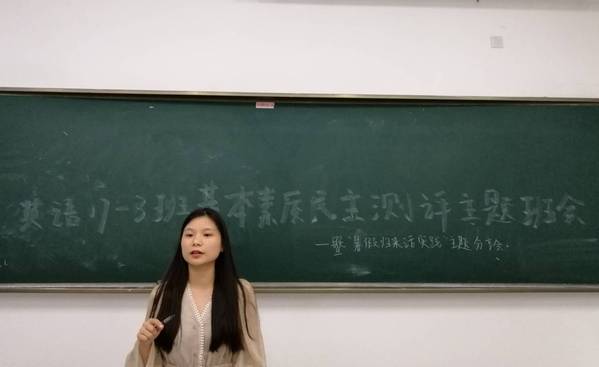 英语17-3班基本素质民主测评主题班会
—暨“暑假归来话实践”主题分享会.